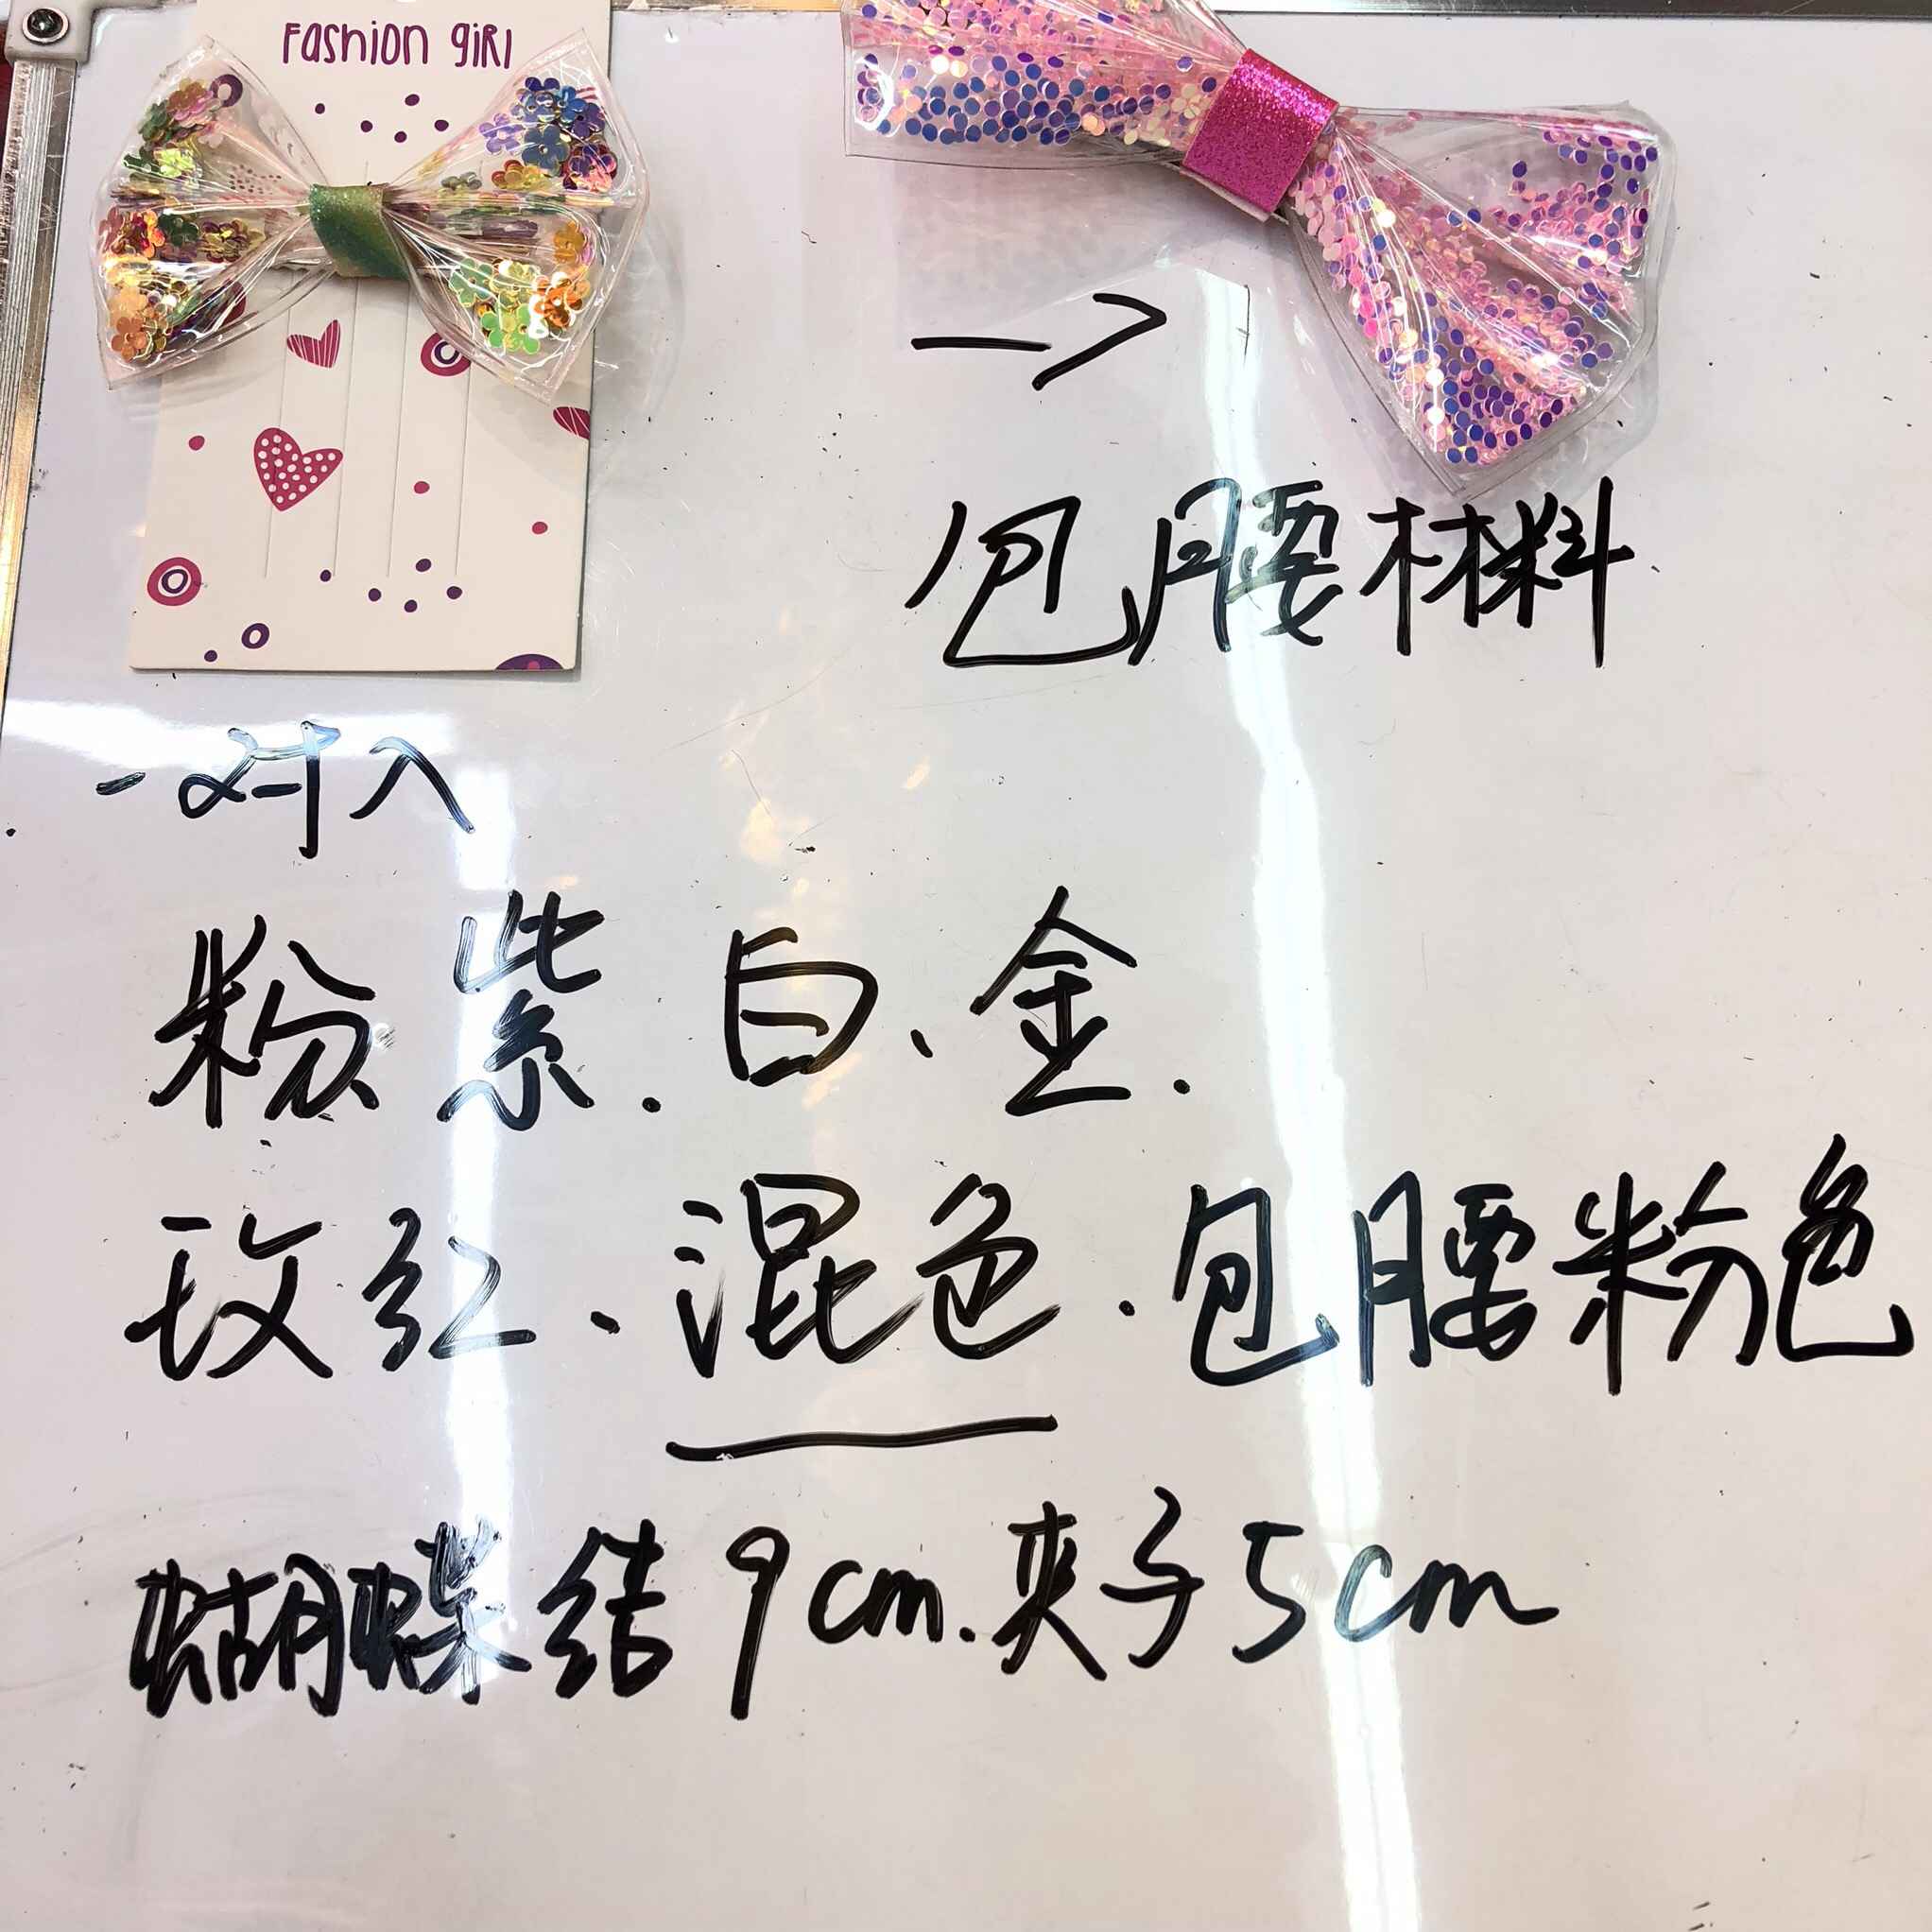 Fashion giRl
→
包腰材料
一对入
粉 紫.白、金.
玫红、混色.包腰粉色
蝴蝶结9cm.夹子5cm